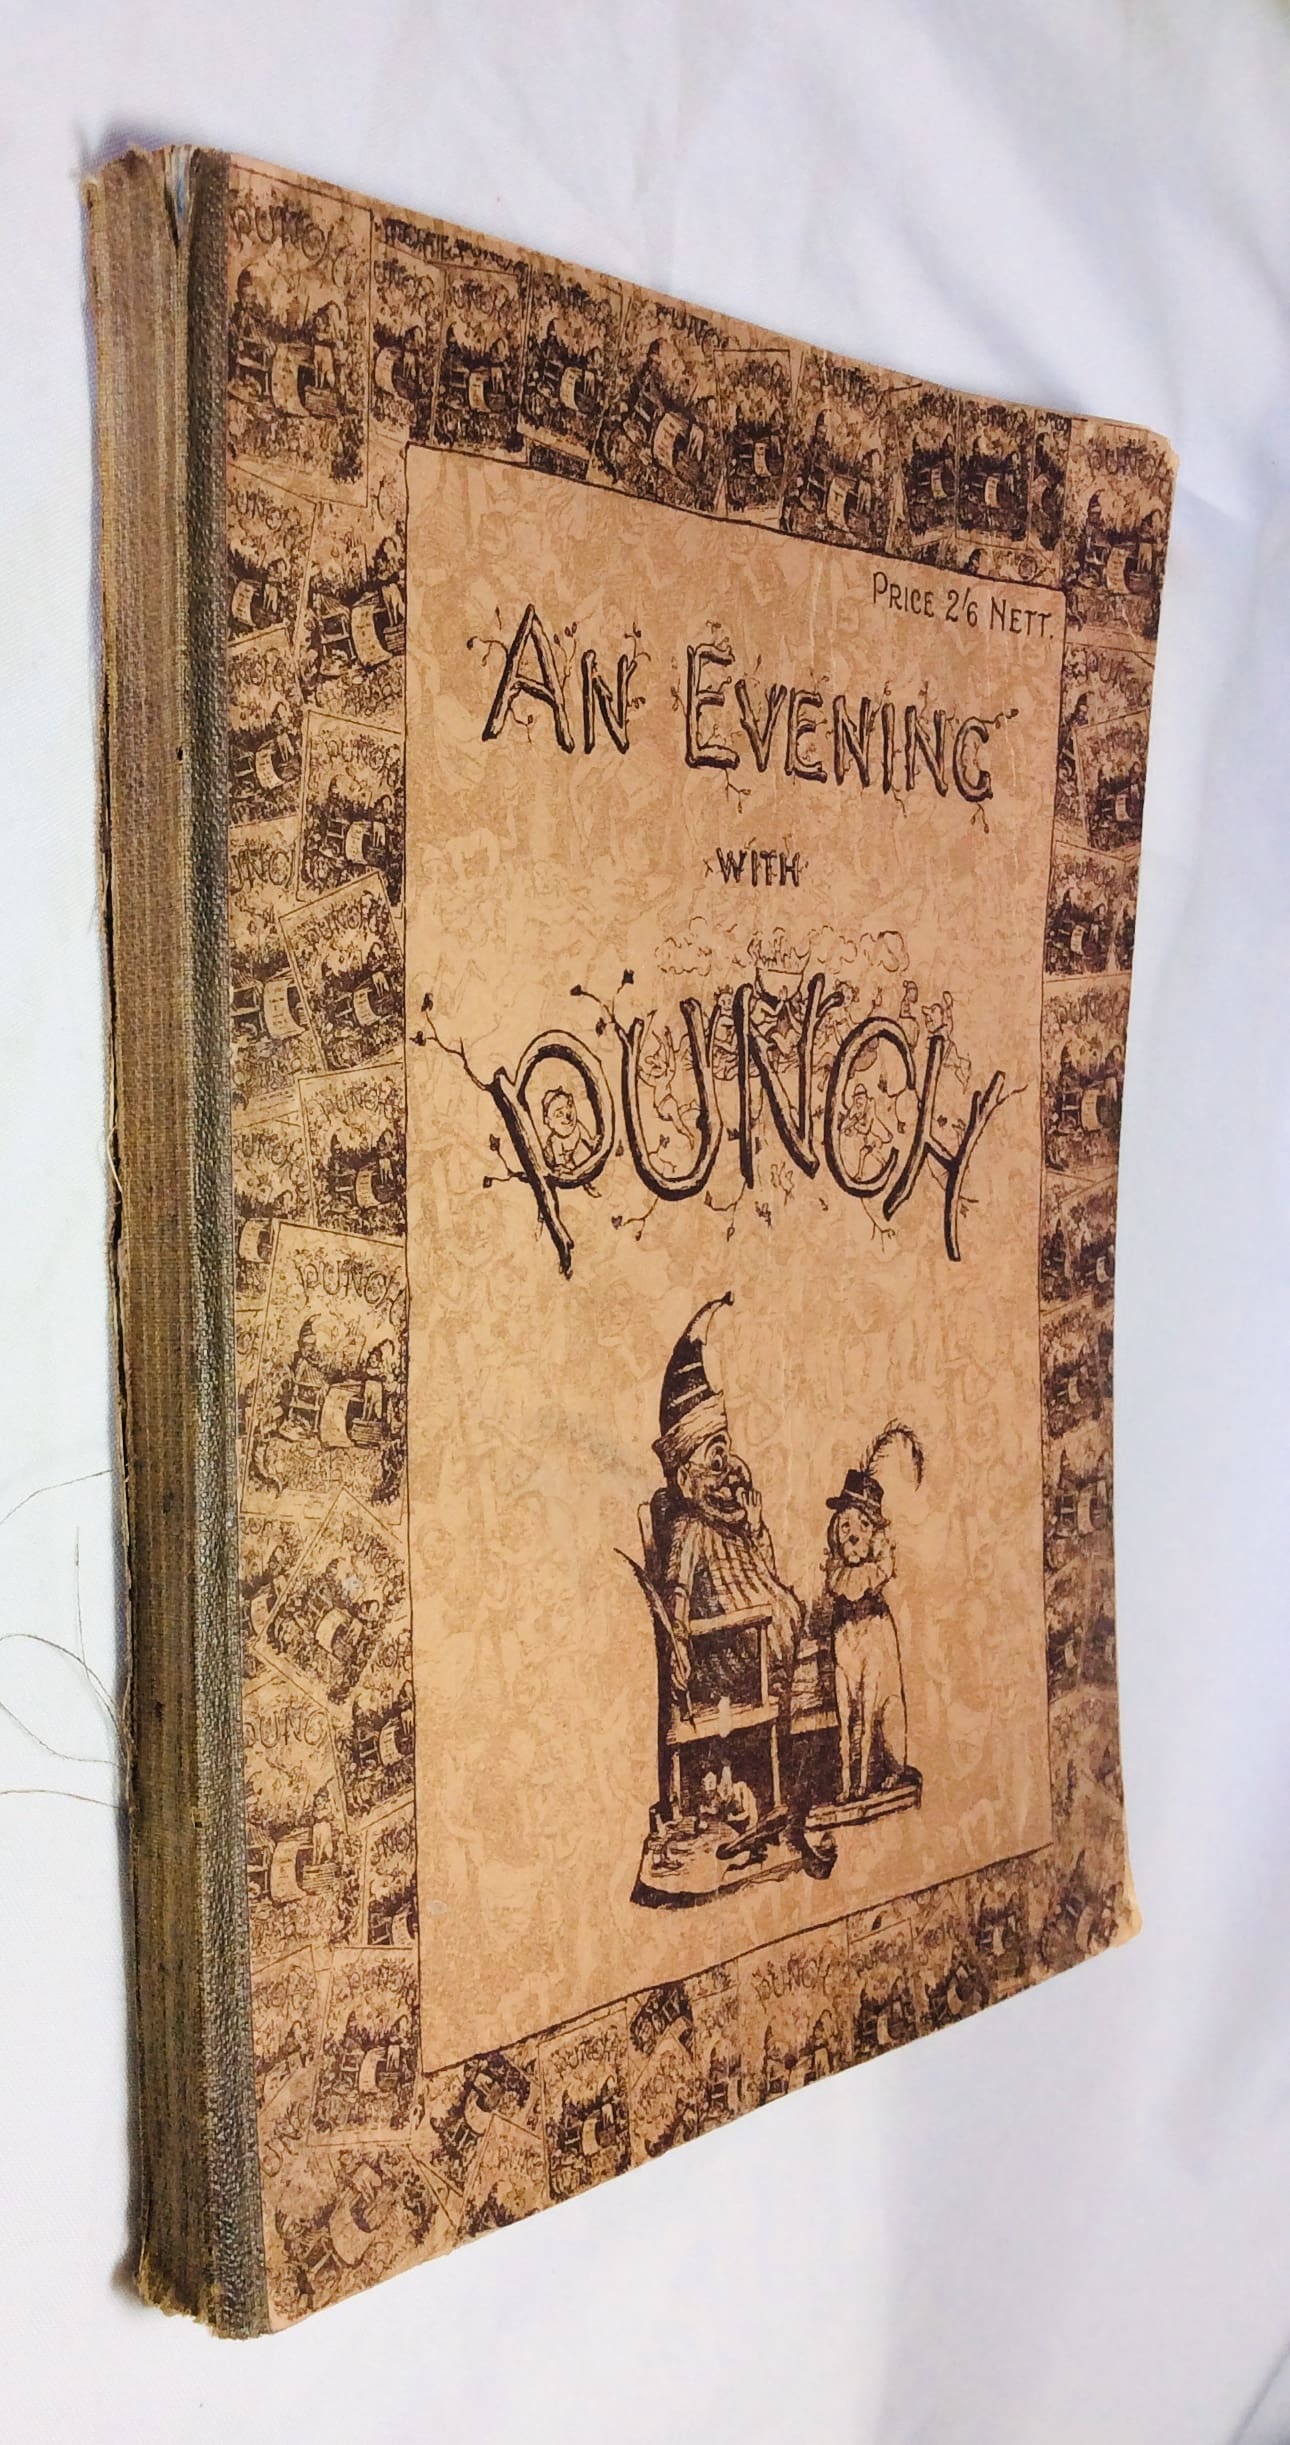 PRICE 2/6 NETT.
AN EVENING
WITH
PUNCH